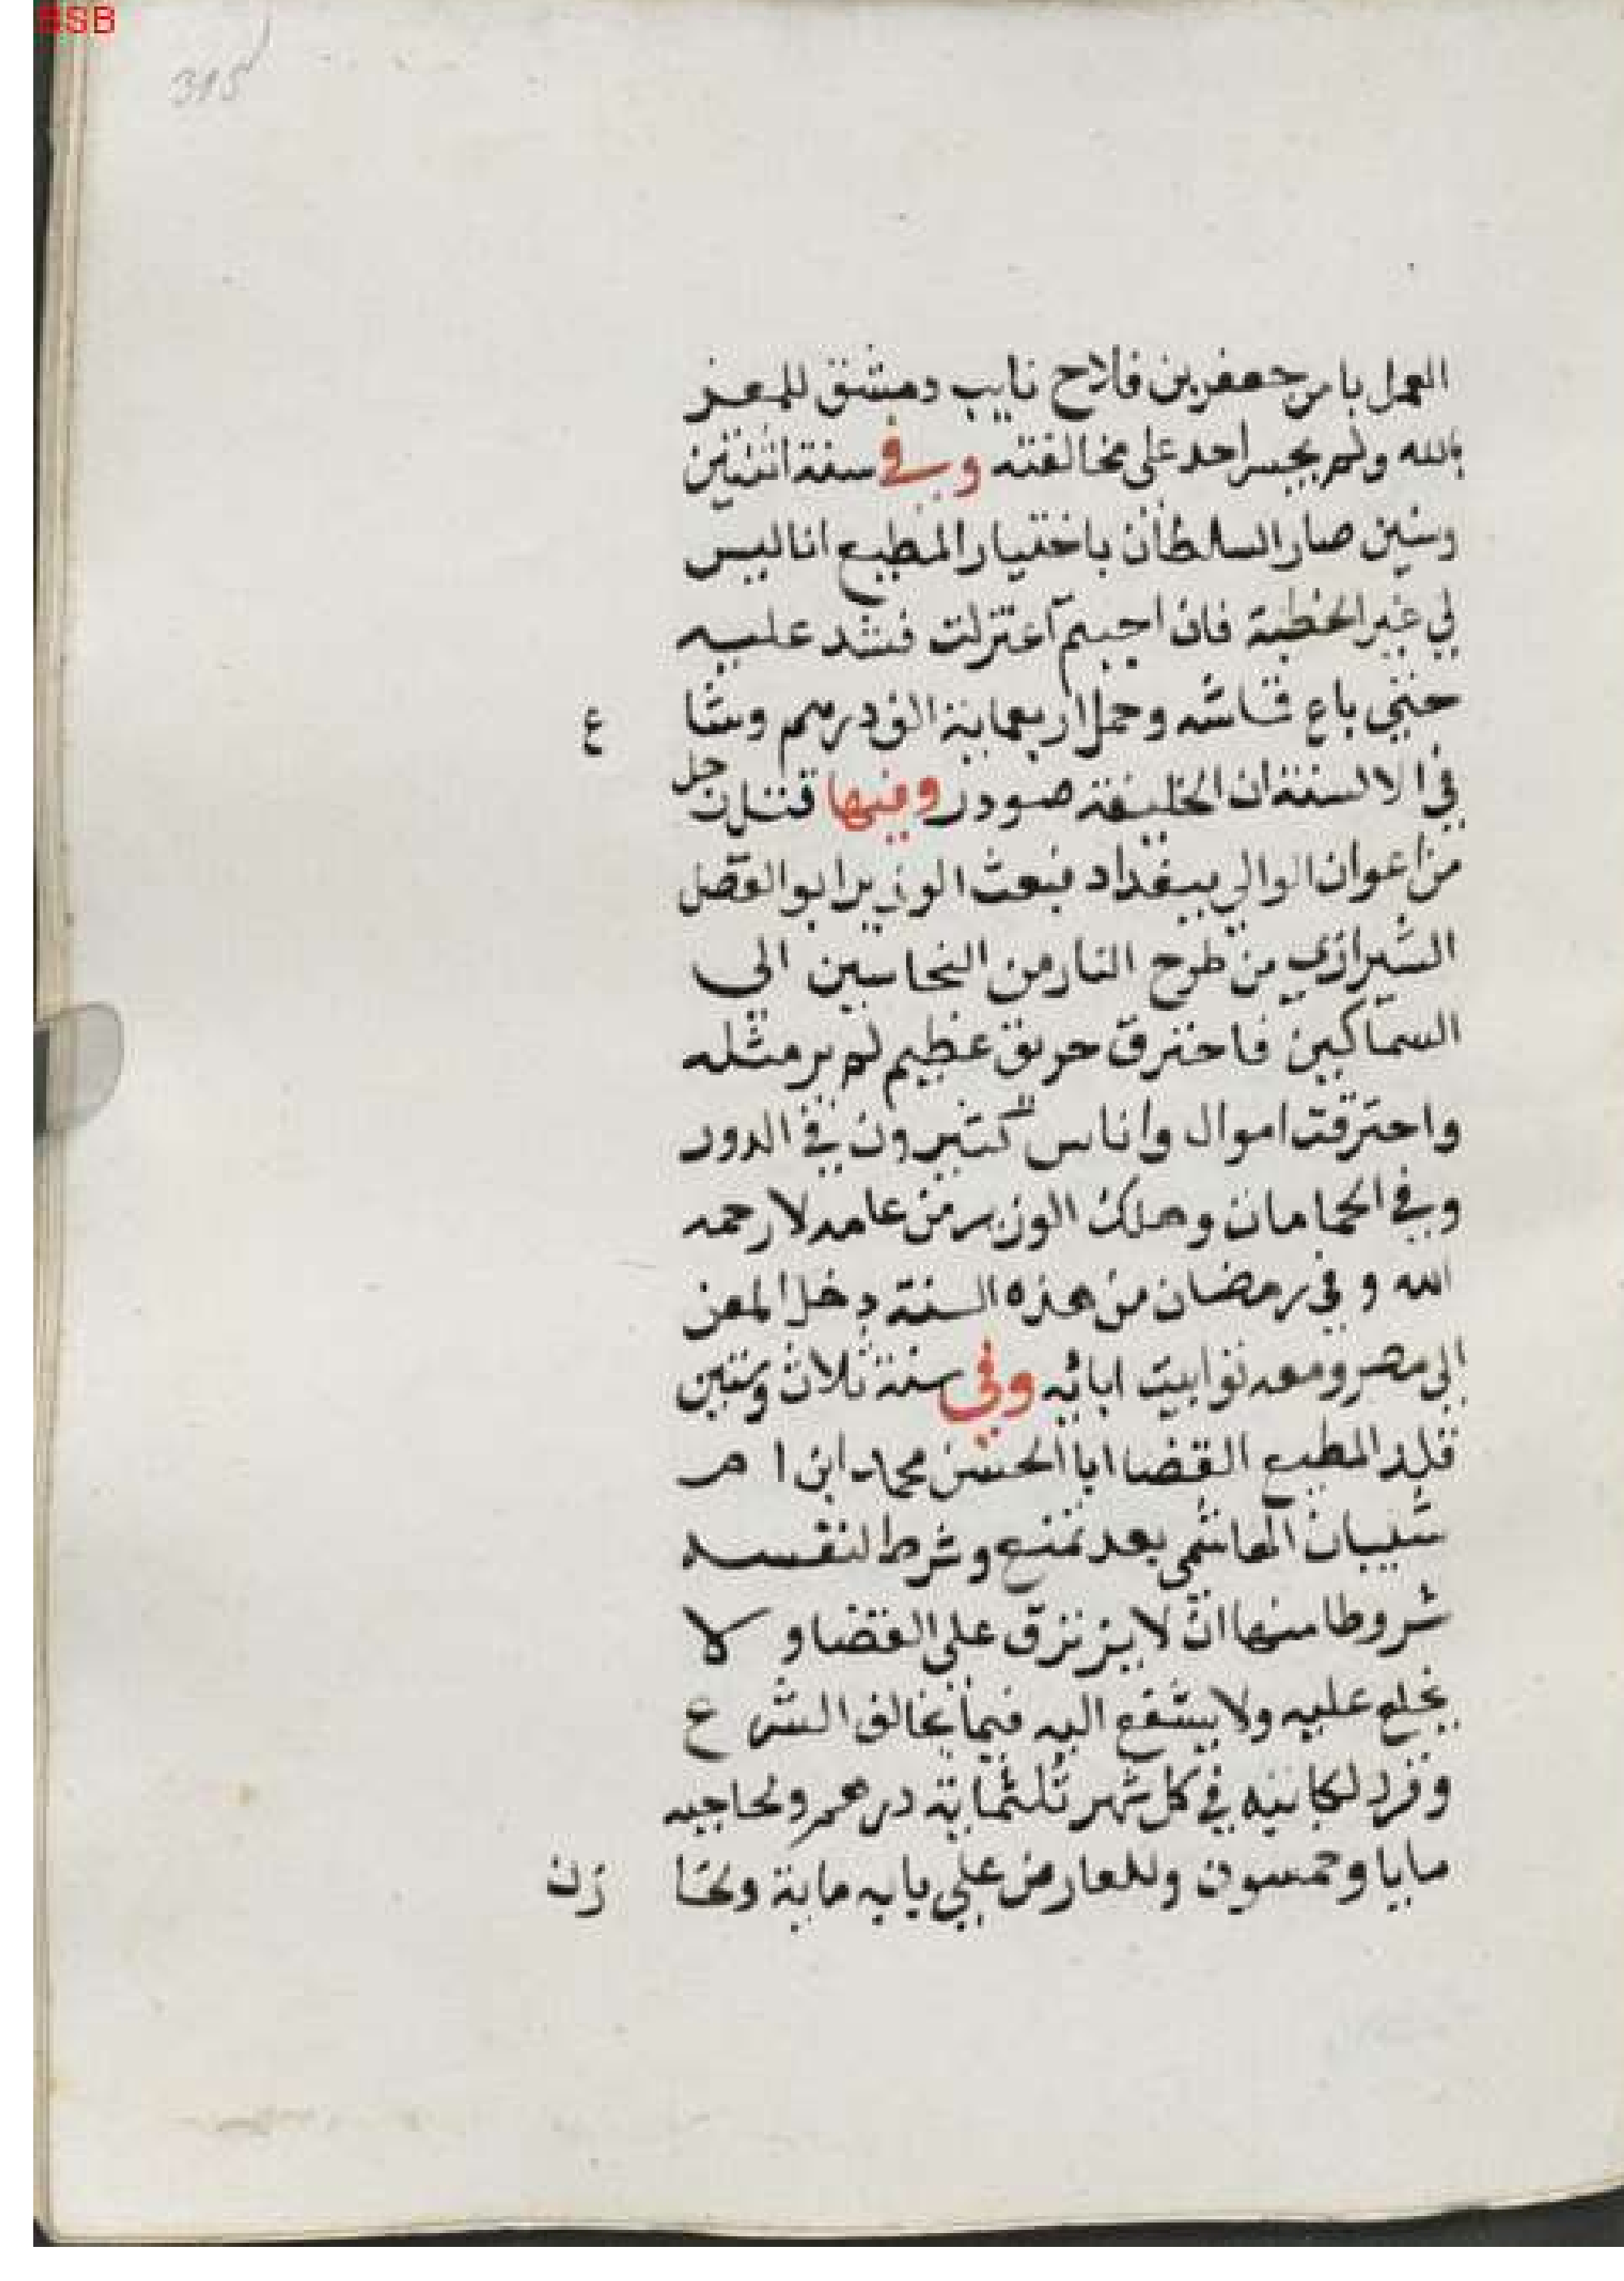 315
العمل بامر جعفر بن فلاح نايب دمشق للمعز
بالله ولم يجسر احد على مخالفته وفي سنة اثنتين
وستين صار السلطان باختيار المطيع انا ليس
لي غير الخطبة فان احببتم اعتزلت فشد عليه
حتي باع قماشه وحمل اربعماية الف درهم وشا ع
في الالسنة ان الخليفة صودر وفيها قتل رجل
من اعوان الوالي ببغداد فبعث الوزير ابو الفضل
الشيرازي من طرح النار من النحاسين الي
السماكين فاحترق حريق عظيم لم ير مثله
واحترقت اموال واناس كثيرون في الدور
وفي الحمامات وهلك الوزير من عامه لا رحمه
الله وفي رمضان من هذه السنة دخل المعز
الى مصر ومعه توابيت ابائه وفي سنة ثلاث وستين
قلد المطيع القضا ابا الحسن محمد ابن ام
شيبان الهاشمي بعد تمنع وشرط لنفسه
شروطا منها ان لا يرتزق على القضا ولا
يخلع عليه ولا يشفع اليه فيما يخالف الشرع
وقرر لكاتبه في كل شهر ثلثماية درهم ولحاجبه
مايا وخمسون وللعارض علي بابه ماية ولخا زن